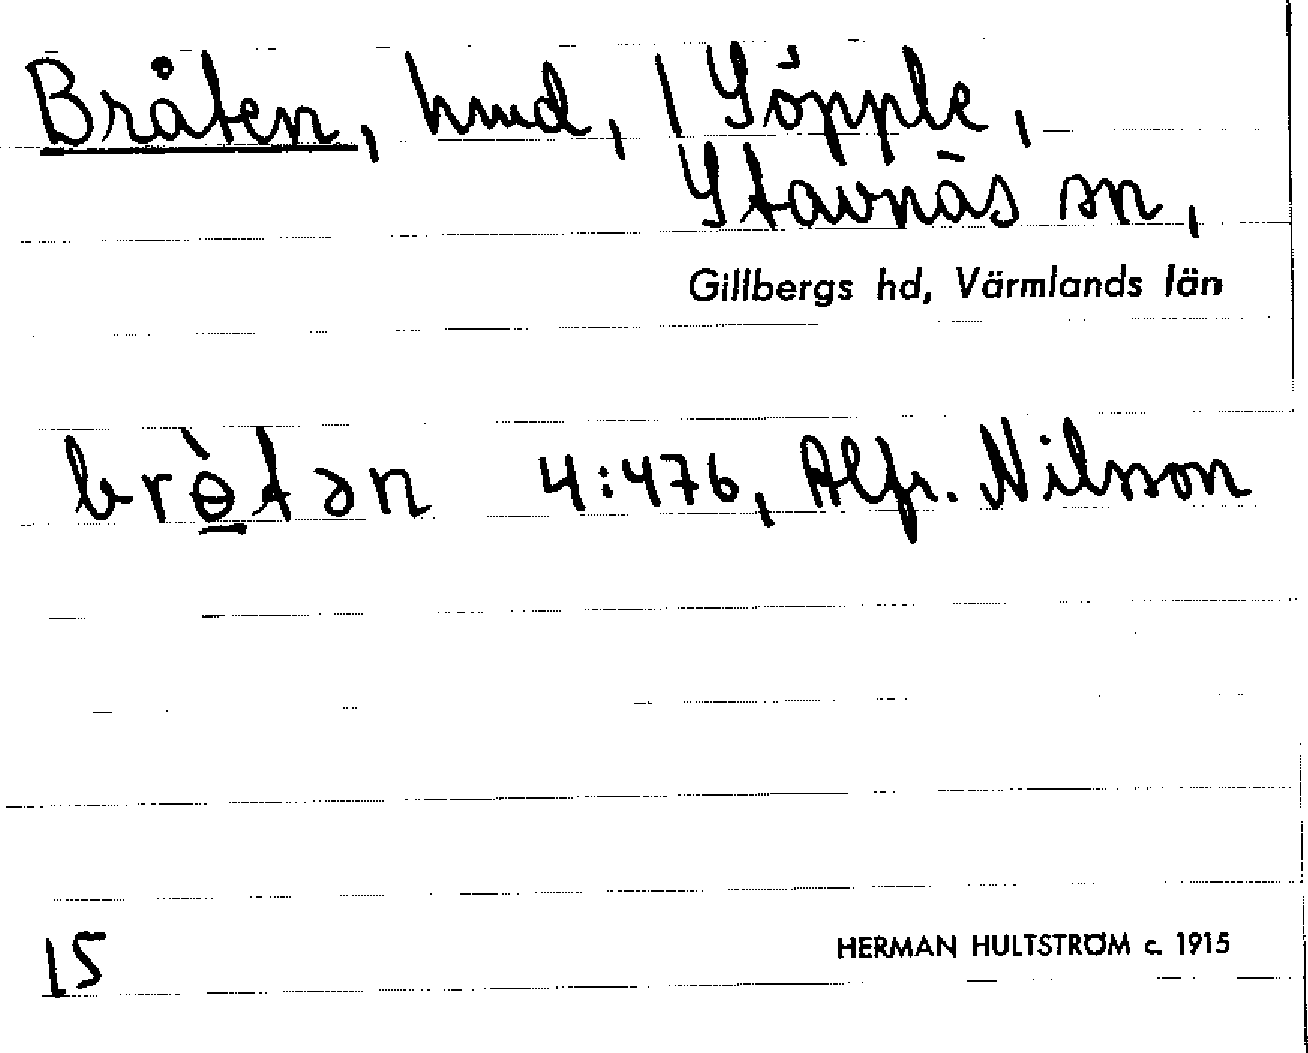 Bråten, hmd, / Söpple,
Stavnäs sn,
Gillbergs hd, Värmlands län
brɵ̠̀tən 4:476, Alfr. Nilsson
15
HERMAN HULTSTRÖM c. 1915